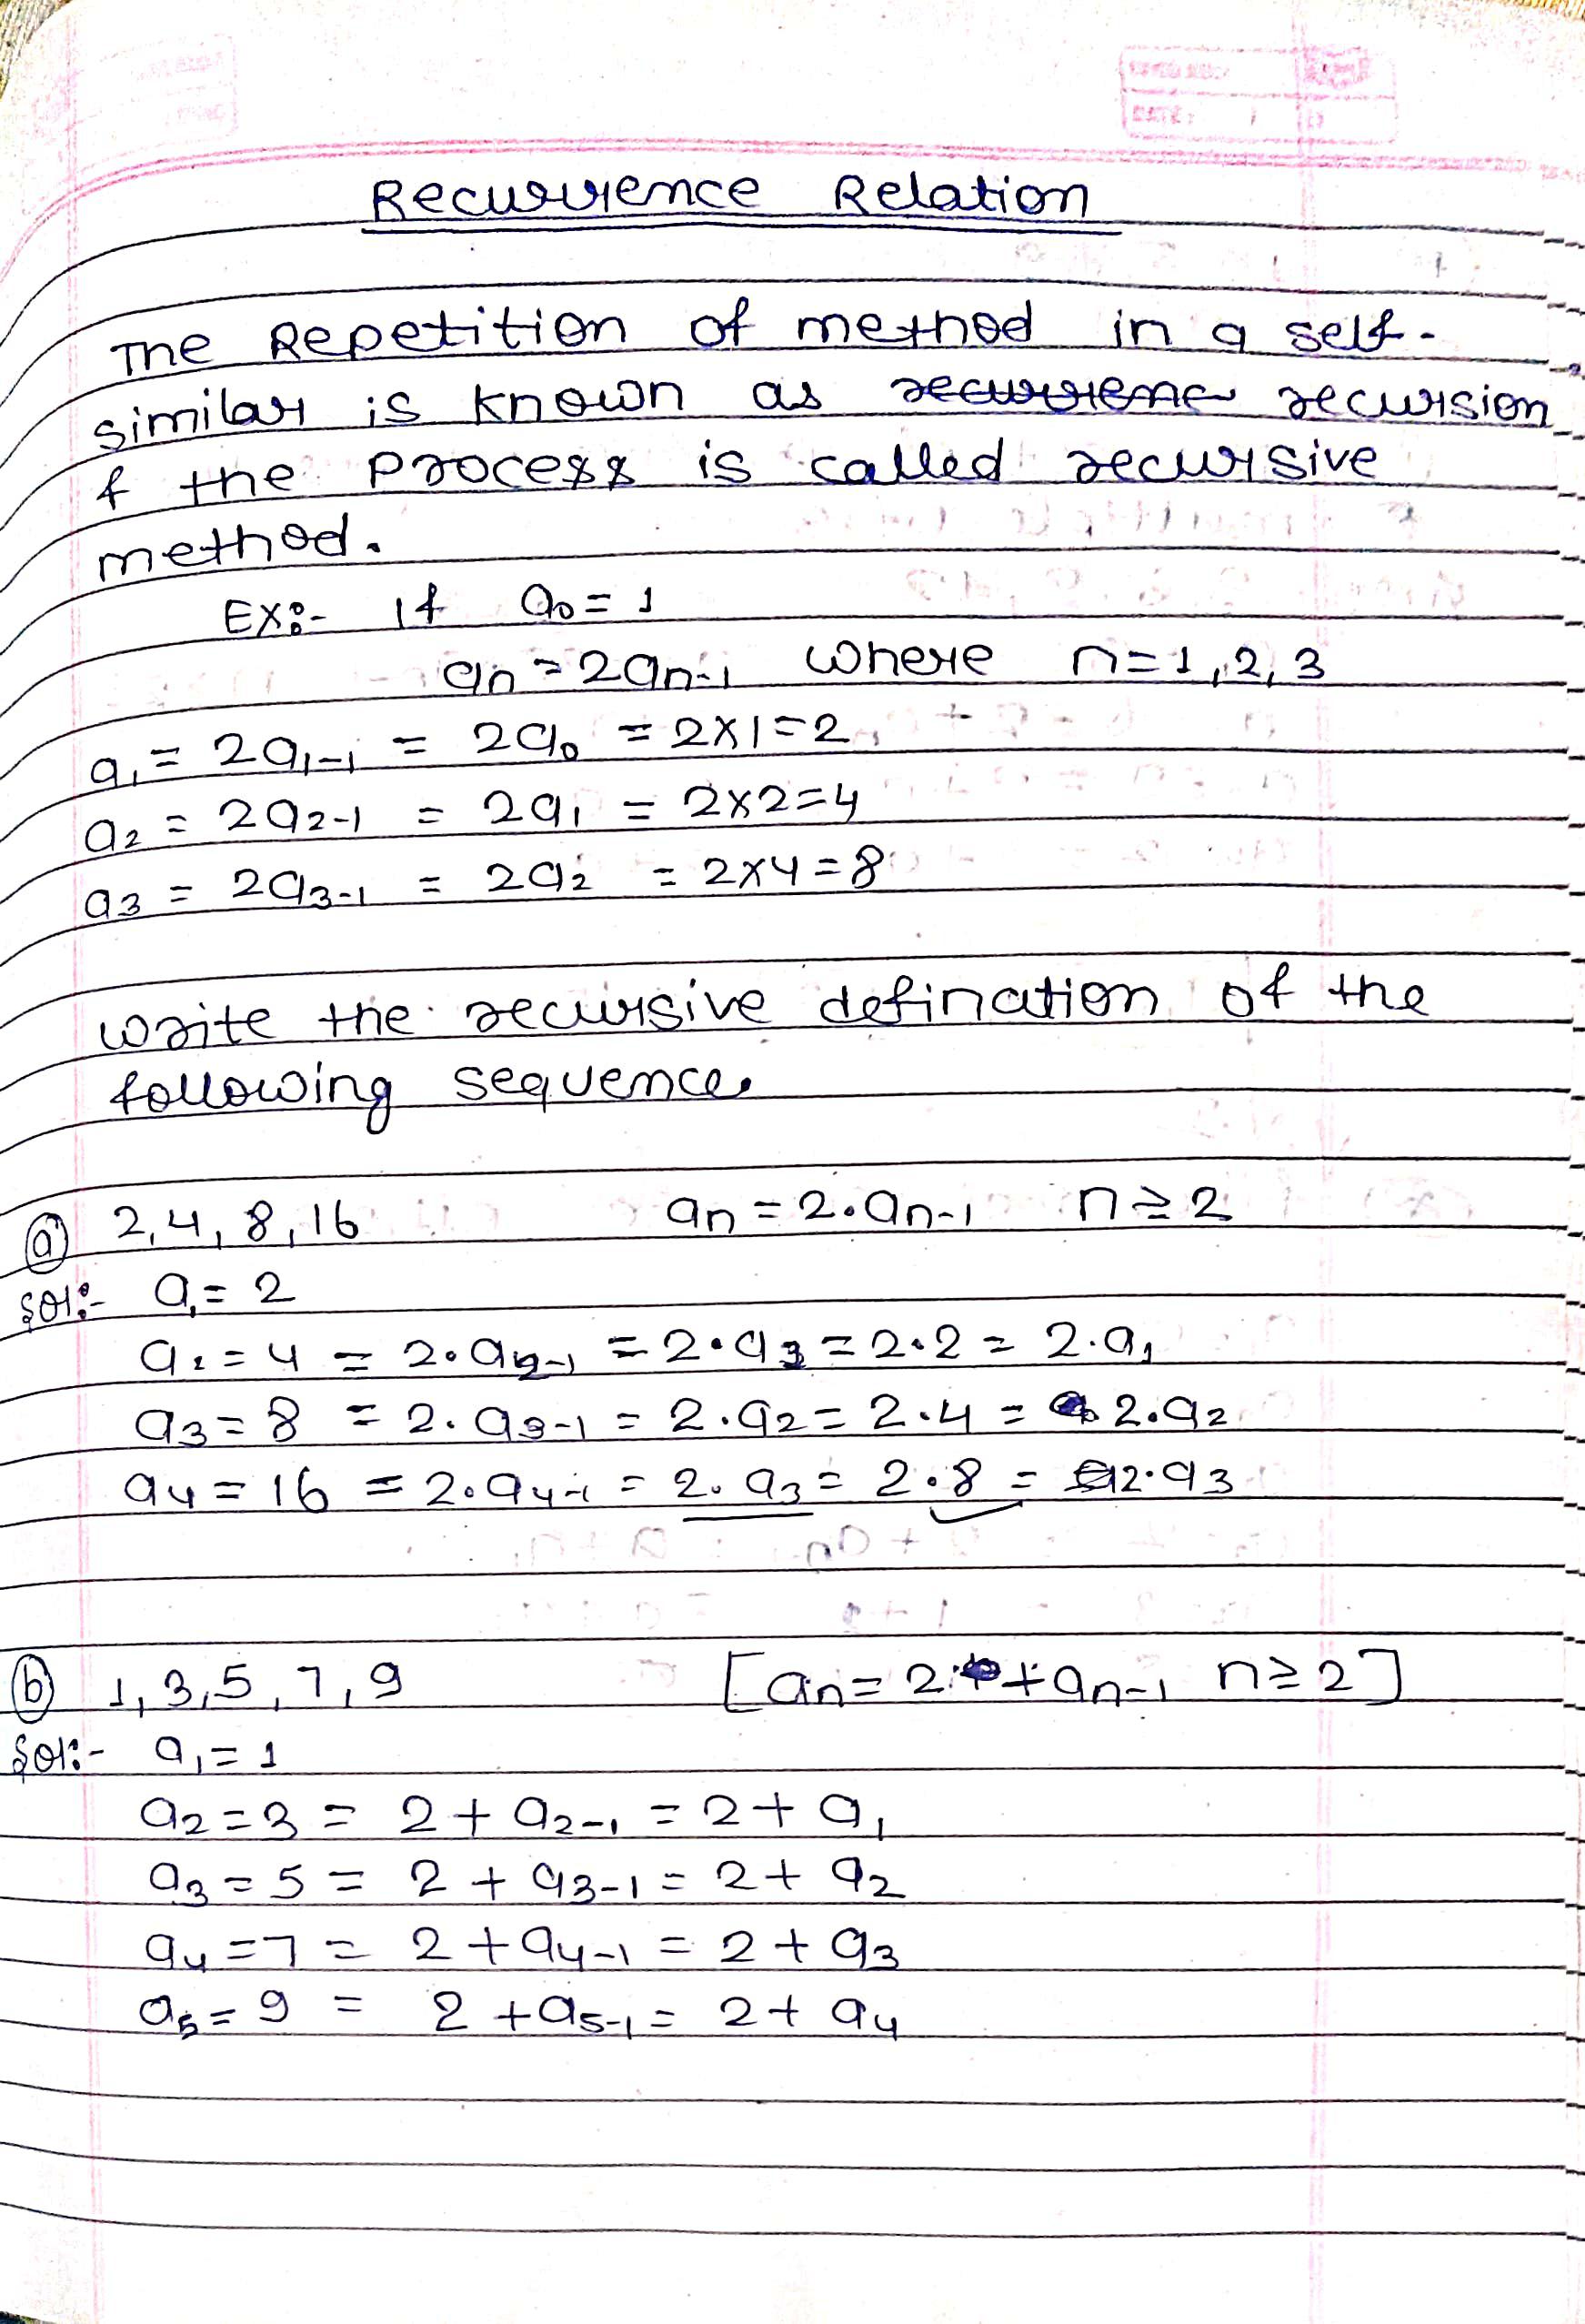 Recurrence Relation
The Repetition of method in a self-
similar is known as recurrence recursion
& the process is called recursive
method.
Ex:- If a₀ = 1
aₙ = 2aₙ₋₁ where n = 1, 2, 3
a₁ = 2a₁₋₁ = 2a₀ = 2×1 = 2
a₂ = 2a₂₋₁ = 2a₁ = 2×2 = 4
a₃ = 2a₃₋₁ = 2a₂ = 2×4 = 8
Write the recursive defination of the
following sequence
(a) 2, 4, 8, 16 aₙ = 2.aₙ₋₁ n ≥ 2
Sol:- a₁ = 2
a₂ = 4 = 2.a₂₋₁ = 2.a = 2.2 = 2.a₁
a₃ = 8 = 2.a₃₋₁ = 2.a₂ = 2.4 = 2.a₂
a₄ = 16 = 2.a₄₋₁ = 2.a₃ = 2.8 = 2.a₃
(b) 1, 3, 5, 7, 9 [aₙ = 2 + aₙ₋₁ n ≥ 2]
Sol:- a₁ = 1
a₂ = 3 = 2 + a₂₋₁ = 2 + a₁
a₃ = 5 = 2 + a₃₋₁ = 2 + a₂
a₄ = 7 = 2 + a₄₋₁ = 2 + a₃
a₅ = 9 = 2 + a₅₋₁ = 2 + a₄